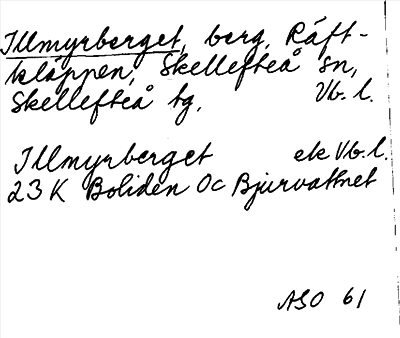 Illmyrberget, berg, Räft-
kläppen, Skellefteå sn,
Skellefteå tg, Vb. l.
Illmyrberget ek Vb. l.
23 K Boliden Oc Bjurvattnet
ASO 61